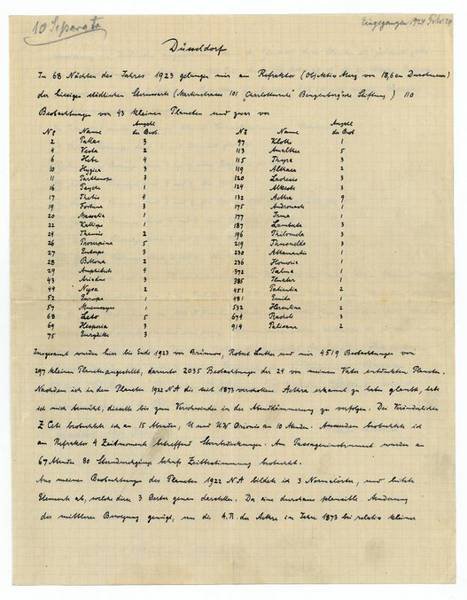 10 Separata
Eingegangen 1924 Febr. 20
Düsseldorf
In 68 Nächten des Jahres 1923 gelangen mir am Refraktor (Objektiv Merz von 18,6 cm Durchmesser)
der hiesigen städtischen Sternwarte (Martinstrasse 101 „Charlottenruhe" Benzenbergische Stiftung) 110
Beobachtungen von 43 kleinen Planeten und zwar von
Anzahl Anzahl
No Name der Beob. No Name der Beob.
2 Pallas 3 97 Klotho 1
4 Vesta 2 113 Amalthea 5
6 Hebe 4 115 Thyra 3
10 Hygiea 3 119 Althaea 2
11 Parthenope 3 120 Lachesis 3
16 Psyche 1 124 Alkeste 3
17 Thetis 4 132 Aethra 9
19 Fortuna 3 175 Andromache 1
20 Massalia 1 177 Irma 1
22 Kalliope 1 187 Lamberta 3
24 Themis 2 196 Philomela 3
26 Proserpina 5 219 Thusnelda 3
27 Euterpe 3 230 Athamantis 1
28 Bellona 2 236 Honoria 1
29 Amphitrite 4 372 Palma 1
43 Ariadne 3 385 Ilmatar 1
44 Nysa 2 451 Patientia 2
52 Europa 3 481 Emita 1
57 Mnemosyne 1 532 Herculina 2
68 Leto 5 674 Rachele 1
69 Hesperia 3 914 Palisana 2
75 Eurydike 3
Insgesamt wurden hier bis Ende 1923 von Brünnow, Robert Luther und mir 4519 Beobachtungen von
297 kleinen Planeten angestellt, darunter 2035 Beobachtungen der 24 von meinem Vater entdeckten Planeten.
Nachdem ich in dem Planeten 1922 N A die seit 1873 verschollene Aethra erkannt zu haben glaubte, liess
ich mir bemüht, dieselbe bis zum Verschwinden in der Abenddämmerung zu verfolgen. Die Veränderlichen
Z Ceti beobachtete ich an 15 Abenden, U und UW Orionis an 10 Abenden. Ausserdem beobachtete ich
am Refraktor 4 Zeitmomente betreffend Sternbedeckungen. Am Passageninstrument wurden an
67 Abenden 80 Sterndurchgänge behufs Zeitbestimmung beobachtet.
Aus meinen Beobachtungen des Planeten 1922 N A bildete ich 3 Normalörter, und leitete
Elemente ab, welche diese 3 Oerter genau darstellen. Da eine durchaus plausible Aenderung
der mittleren Bewegung genügt, um die A.R. der Aethra im Jahre 1873 bei relativ kleiner